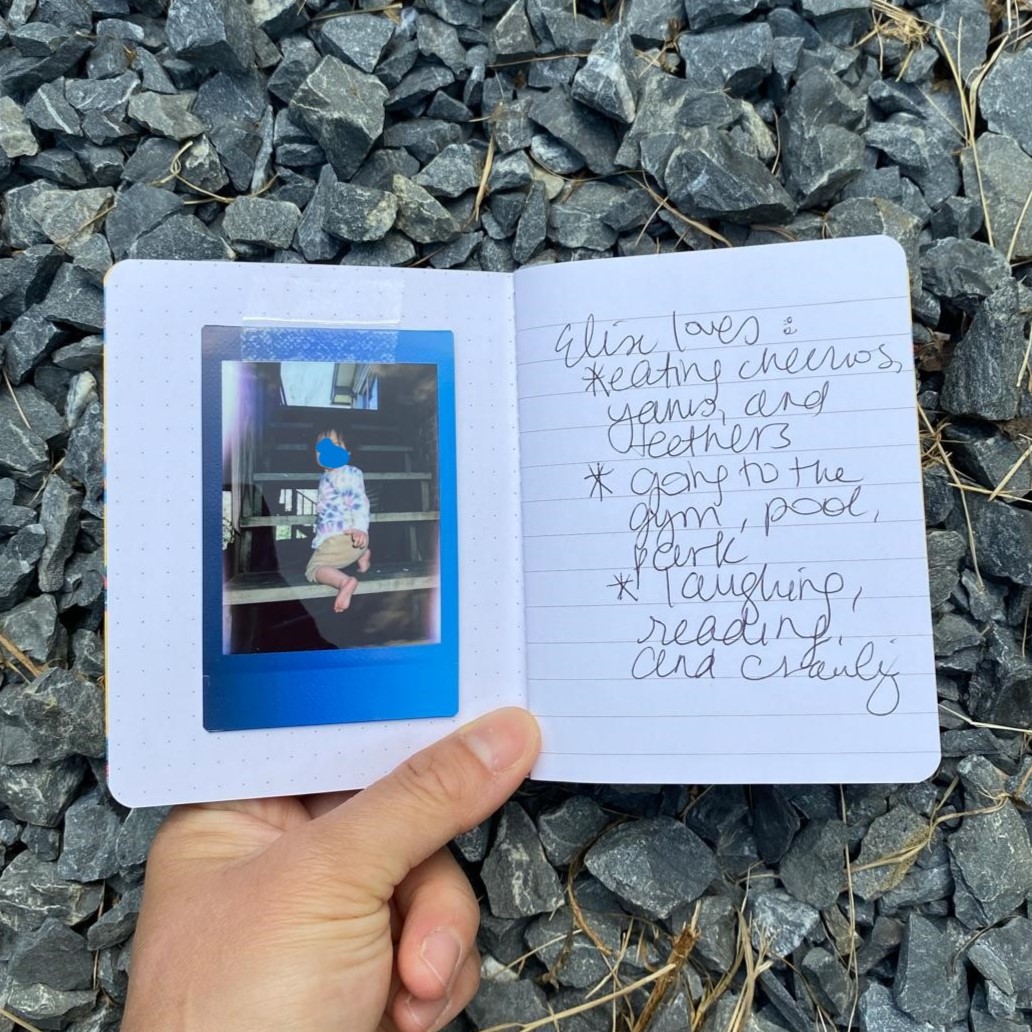 Elise loves :
*eating cheerios,
yams, and
teethers
* going to the
gym, pool,
park
* laughing,
reading,
and